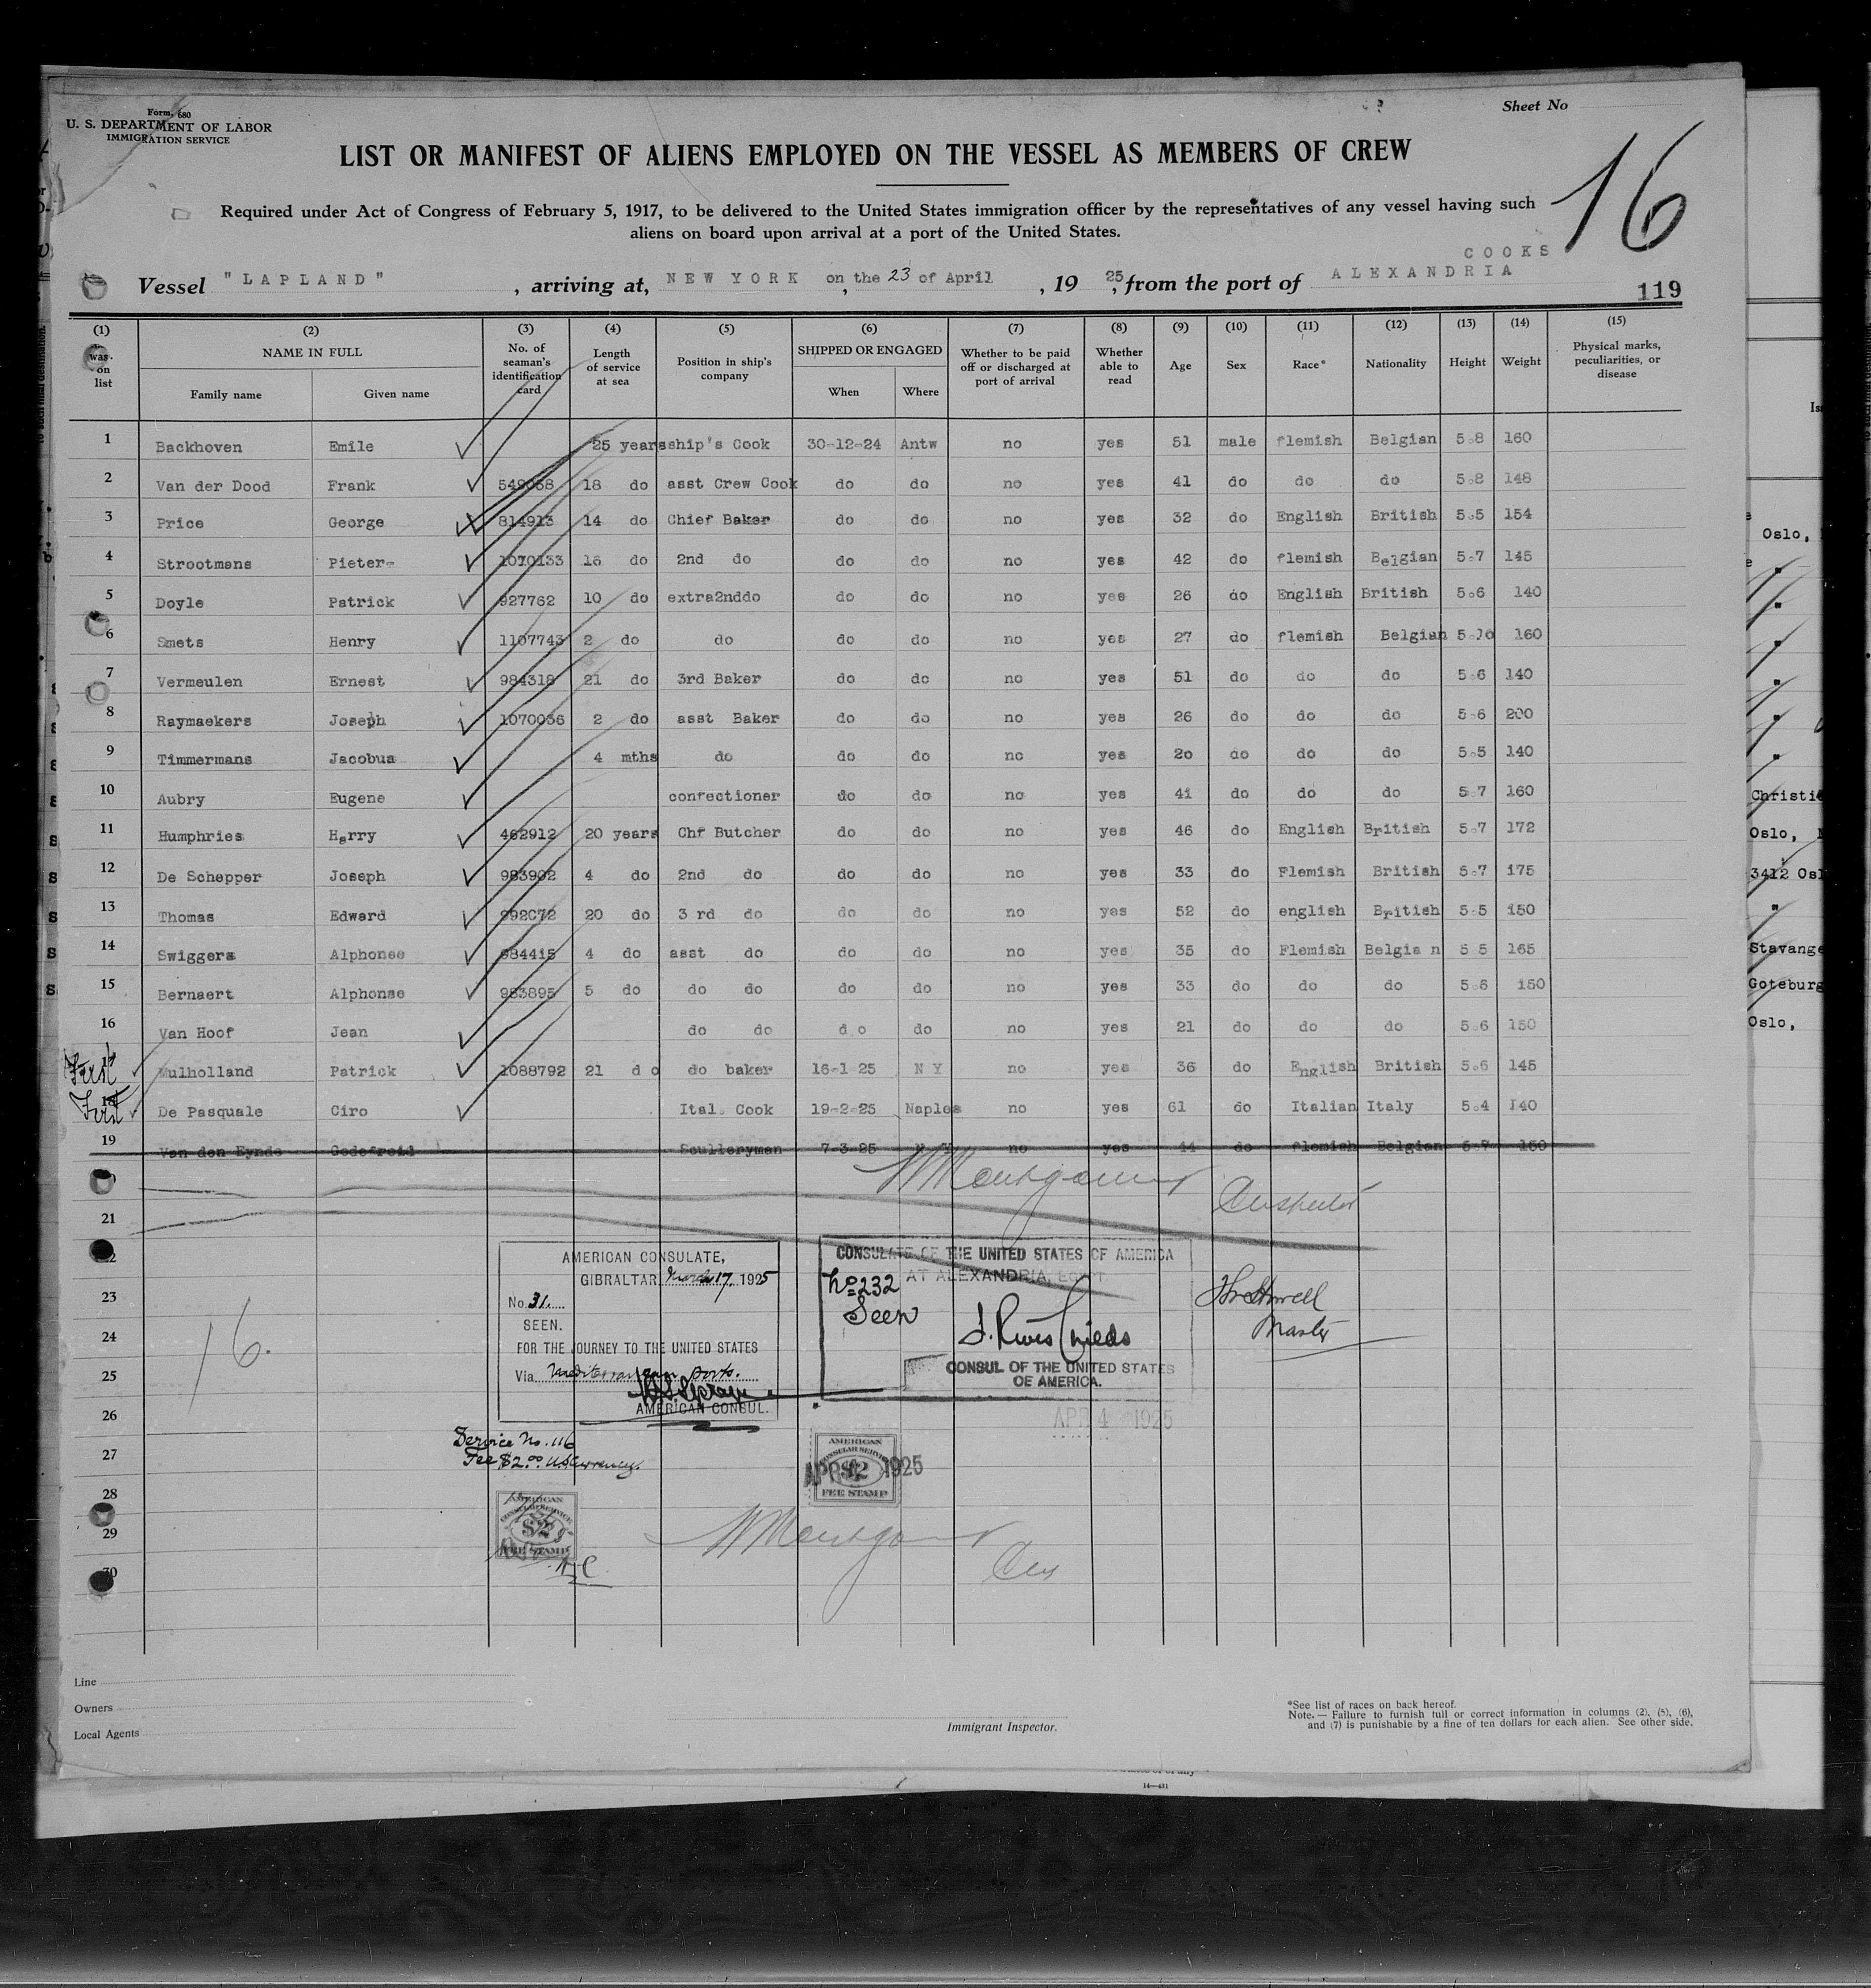 Form 680
U. S. DEPARTMENT OF LABOR
IMMIGRATION SERVICE
Sheet No
16
LIST OR MANIFEST OF ALIENS EMPLOYED ON THE VESSEL AS MEMBERS OF CREW
Required under Act of Congress of February 5, 1917, to be delivered to the United States immigration officer by the representatives of any vessel having such
aliens on board upon arrival at a port of the United States.
COOKS
Vessel "LAPLAND", arriving at, NEW YORK on the 23 of April, 1925, from the port of ALEXANDRIA
119
(1) (2) (3) (4) (5) (6) (7) (8) (9) (10) (11) (12) (13) (14) (15)
was on list
NAME IN FULL
Family name Given name
No. of seaman's identification card
Length of service at sea
Position in ship's company
SHIPPED OR ENGAGED
When Where
Whether to be paid off or discharged at port of arrival
Whether able to read
Age Sex Race* Nationality Height Weight
Physical marks, peculiarities, or disease
1 Backhoven Emile 25 years ship's Cook 30-12-24 Antw no yes 51 male flemish Belgian 5.8 160
2 Van der Dood Frank 18 do asst Crew Cook do do no yes 41 do do do 5.8 148
3 Price George 814913 14 do Chief Baker do do no yes 32 do English British 5.5 154
4 Strootmans Pieter 1070133 do 2nd do do do no yes 42 do flemish Belgian 5.7 145
5 Doyle Patrick 927762 10 do extra2nddo do do no yes 26 do English British 5.6 140
6 Smets Henry 1107743 2 do do do do no yes 27 do flemish Belgian 5.10 160
7 Vermeulen Ernest 984318 21 do 3rd Baker do do no yes 51 do do do 5.6 140
8 Raymaekers Joseph 1070036 2 do asst Baker do do no yes 26 do do do 5.6 200
9 Timmermans Jacobus 4 mths do do do no yes 20 do do do 5.5 140
10 Aubry Eugene confectioner do do no yes 41 do do do 5.7 160
11 Humphries Harry 462912 20 years Chf Butcher do do no yes 46 do English British 5.7 172
12 De Schepper Joseph 983902 4 do 2nd do do do no yes 33 do Flemish British 5.7 175
13 Thomas Edward 992072 20 do 3 rd do do do no yes 52 do english British 5.5 150
14 Swiggers Alphonse 984415 4 do asst do do do no yes 35 do Flemish Belgia n 5 5 165
15 Bernaert Alphonse 983895 5 do do do do do no yes 33 do do do 5.6 150
16 Van Hoof Jean do do d o do no yes 21 do do do 5.6 150
First Mulholland Patrick 1088792 21 d o do baker 16-1-25 N Y no yes 36 do English British 5.6 145
First De Pasquale Ciro Ital. Cook 19-2-25 Naples no yes 61 do Italian Italy 5.4 140
19 Van den Eynde Godefroid Sculleryman 7-3-25 N Y no yes 44 do flemish Belgian 5.7 150
Montgomery Inspector
21
AMERICAN CONSULATE,
GIBRALTAR March 17, 1925
No. 31.
SEEN.
FOR THE JOURNEY TO THE UNITED STATES
Via Mediterranean ports.
AMERICAN CONSUL.
CONSULATE OF THE UNITED STATES OF AMERICA
AT ALEXANDRIA, EGYPT
No 232
Seen
CONSUL OF THE UNITED STATES
OF AMERICA.
APR 4 1925
Master
23
24
25
26
27
28
29
30
16.
Service No. 116
Fee $2.00 US Currency.
AMERICAN
CONSULAR SERVICE
$2
FEE STAMP
APR 4 1925
AMERICAN
CONSULAR SERVICE
$2
FEE STAMP
Montgomery
Ins
Line
Owners
Local Agents
Immigrant Inspector.
*See list of races on back hereof.
Note. — Failure to furnish full or correct information in columns (2), (5), (6),
and (7) is punishable by a fine of ten dollars for each alien. See other side.
14—431
Oslo,
Christi
Oslo,
3412 Osl
Stavange
Goteburg
Oslo,